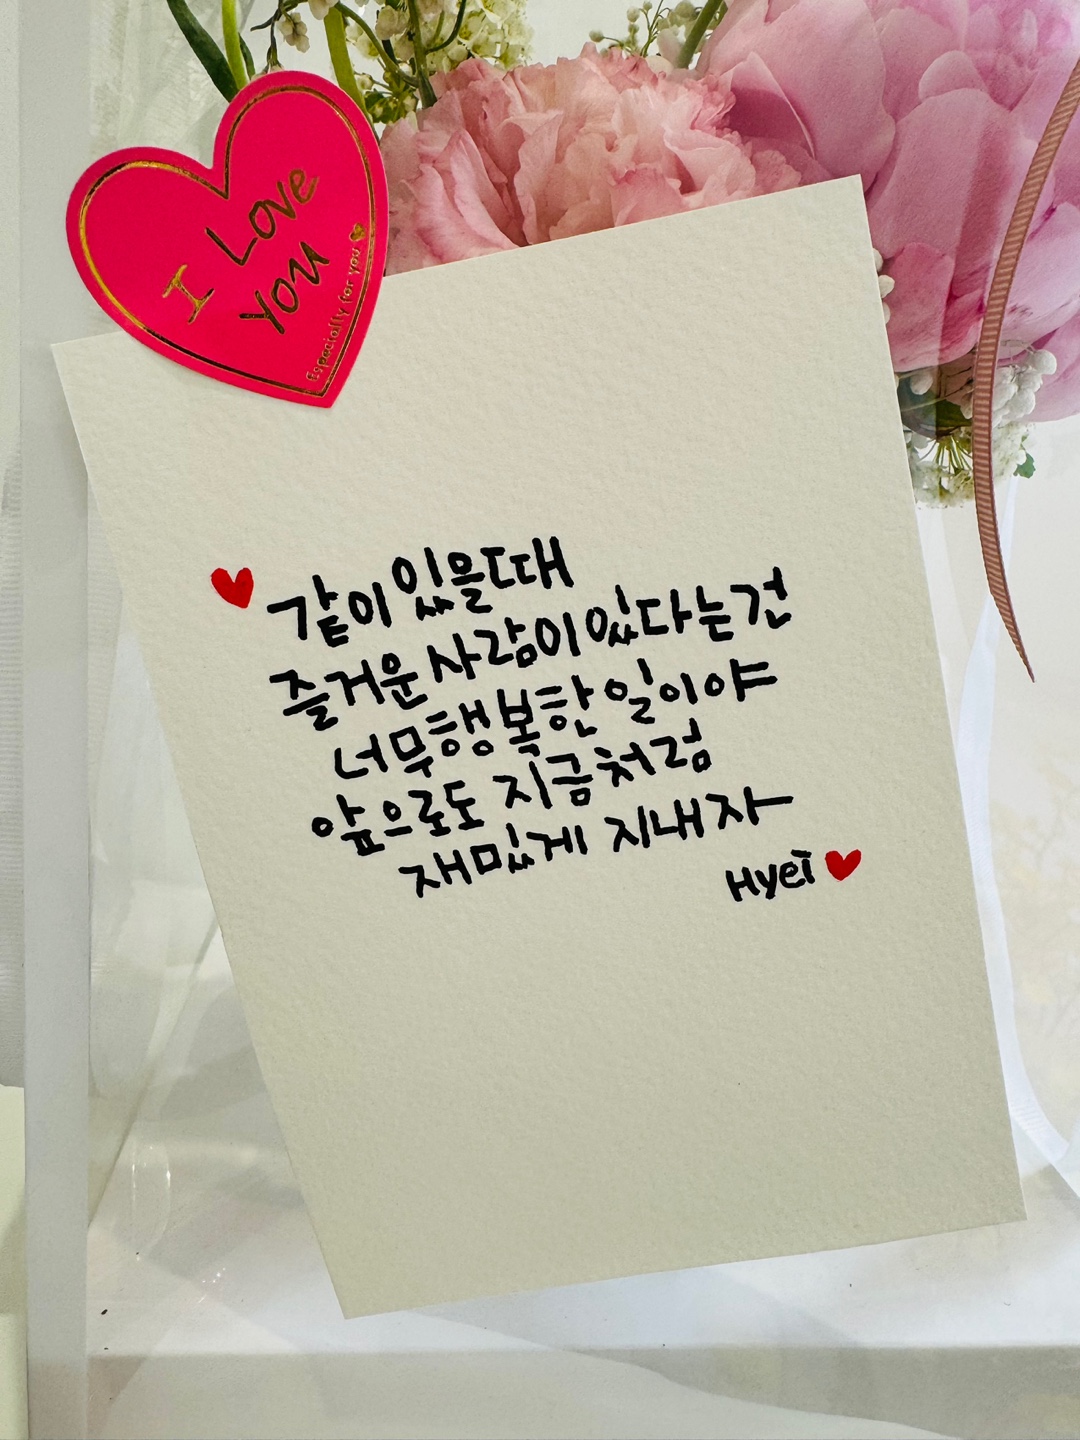 I Love
You
Especially for you
같이 있을때
즐거운 사람이 있다는건
너무 행복한 일이야
앞으로도 지금처럼
재밌게 지내자
Hyei